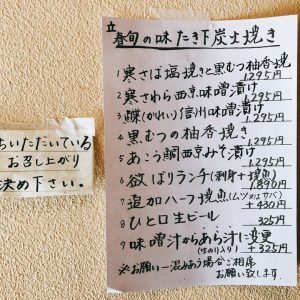 春旬の味 たき下炭士焼き
1 寒さば塩焼きと黒むつ柚香焼
1.295円
2 寒さわら西京味噌漬け
1.295円
3 鰈(かれい)信州味噌漬け
1.295円
4 黒むつの柚香焼き
1.295円
5 あこう鯛西京みそ漬け
1.295円
6 欲ばりランチ(刺身+焼魚)
1.890円
7 追加ハーフ焼魚(ムツ又はサバ)
+430円
8 ひと口生ビール 325円
9 味噌汁からあら汁に変更
(生のり入り) +325円
※お願い―混みあう場合ご相席
お願い致します。
ちいただいている
お召し上がり
決め下さい。